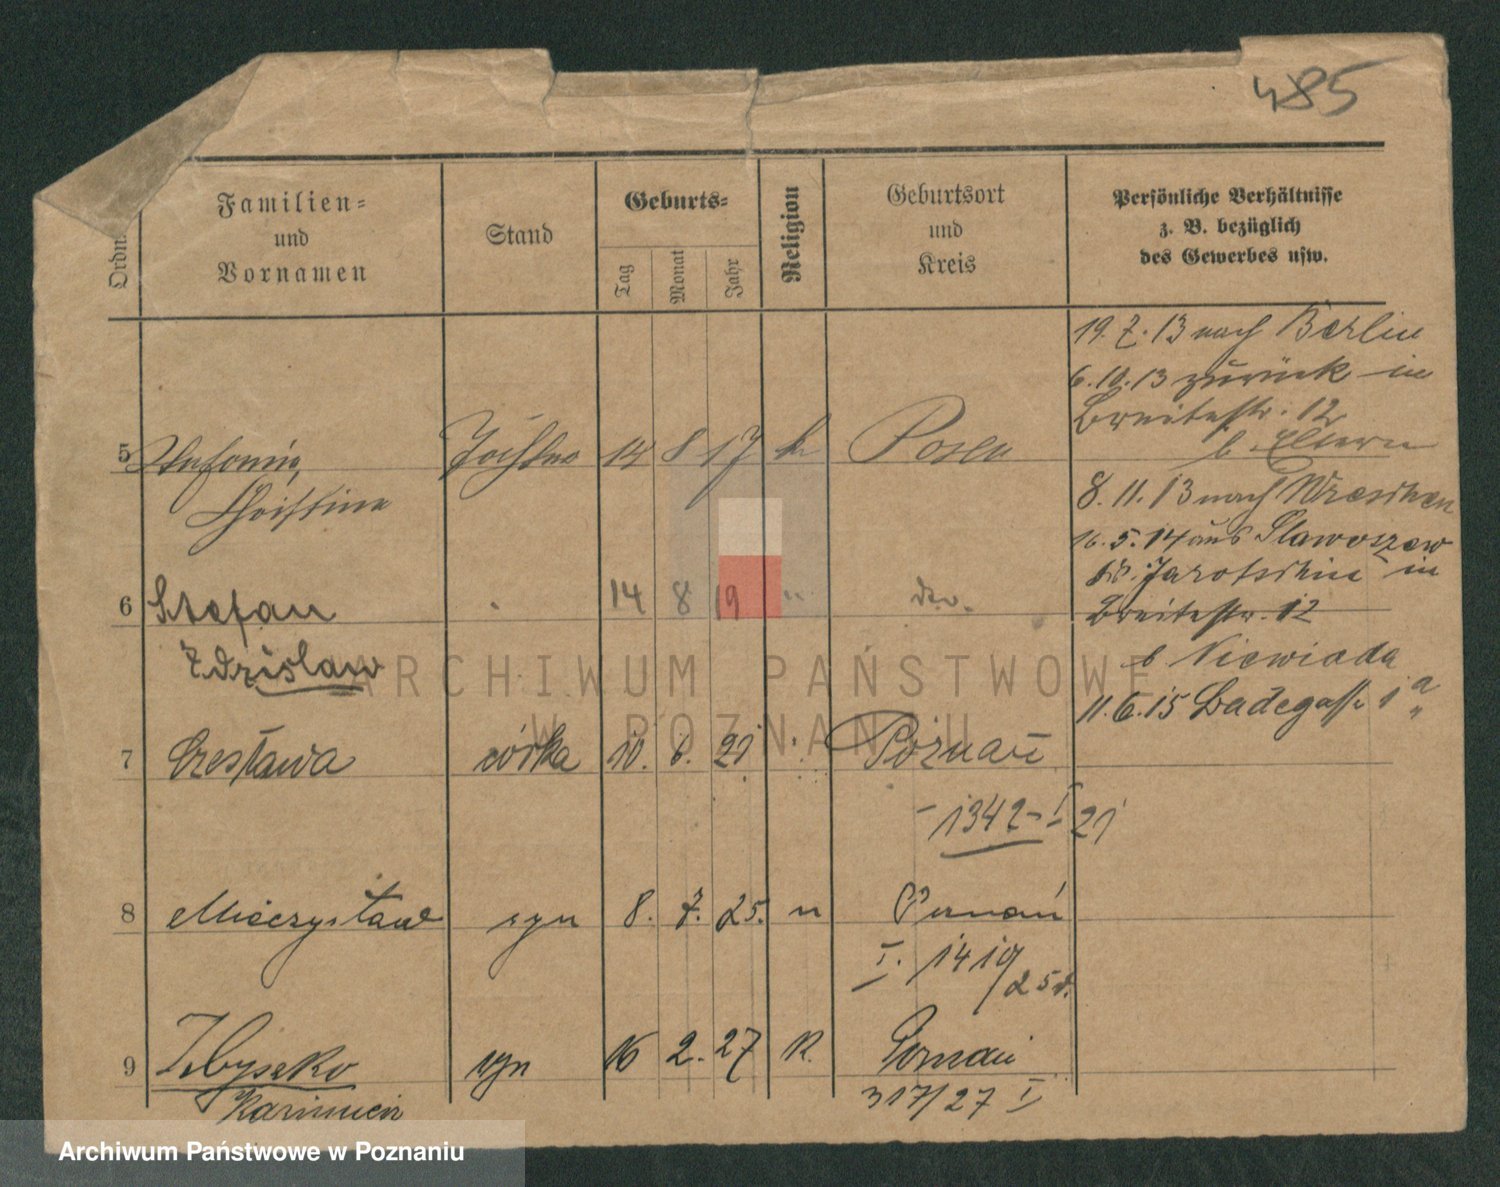 485
Ordn.
Familien-
und
Vornamen
Stand
Geburts-
Tag
Monat
Jahr
Religion
Geburtsort
und
Kreis
Persönliche Verhältnisse
z. B. bezüglich
des Gewerbes usw.
19. 7. 13 nach Berlin
6. 10. 13 zurück in
Breitestr. 12
b. Eltern
8. 11. 13 nach Wreschen
16. 5. 14 aus Slawoszew
Kr. Jarotschin in
Breitestr. 12
b Niewiada
11. 6. 15 Badegasse 1 a
5 Antonina Tochter 14 8 17 k Posen
Christina
6 Stefan 14 8 19 " do.
Zdzislaw
7 Czesława córka 10. 6. 21 Poznań
- 1342 - I 21
8 Mieczysław syn 8. 7. 25. " Poznań
I. 1419/25
9 Zbyszko syn 16 2. 27 K. Poznań
Kazimierz 317/27 I
ARCHIWUM PAŃSTWOWE
W POZNANIU
Archiwum Państwowe w Poznaniu